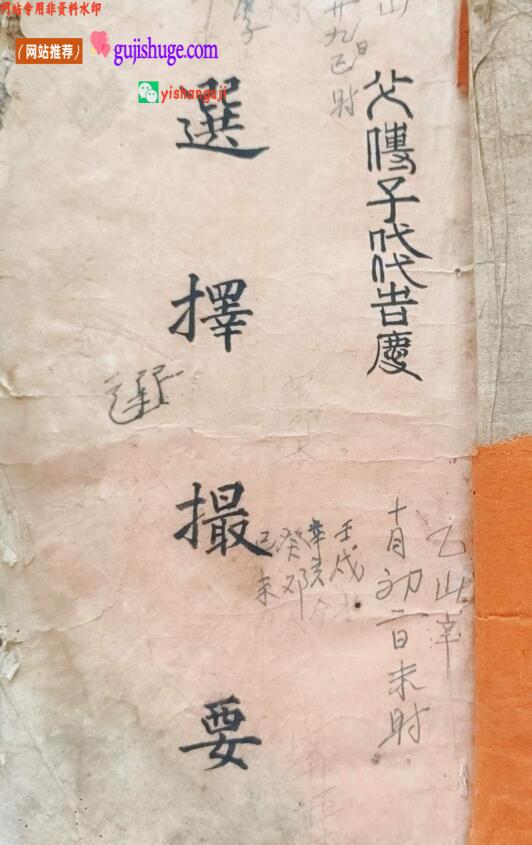 网站专用非资料水印
（网站推荐）
gujishuge.com
yishanguji
山
廿九日巳时
父傳子代代吉慶
乙山辛
十月初二日未时
壬戌
癸卯
己未
選擇撮要
選